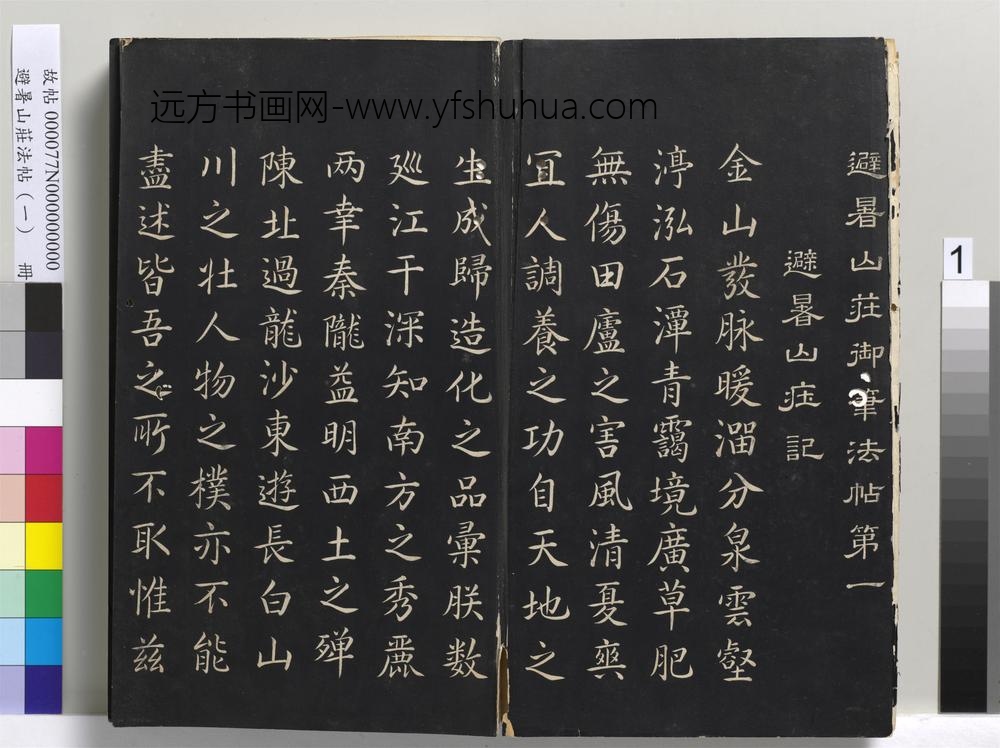 远方书画网-www.yfshuhua.com
避暑山莊御筆法帖第一
避暑山庄記
金山發脉暖溜分泉雲壑
渟泓石潭青靄境廣草肥
無傷田廬之害風清夏爽
宜人調養之功自天地之
生成歸造化之品彙朕数
廵江干深知南方之秀麗
两幸秦隴益明西土之殫
陳北過龍沙東遊長白山
川之壮人物之樸亦不能
盡述皆吾之所不取惟兹
故帖 000077N000000000
避暑山莊法帖(一) 冊
1